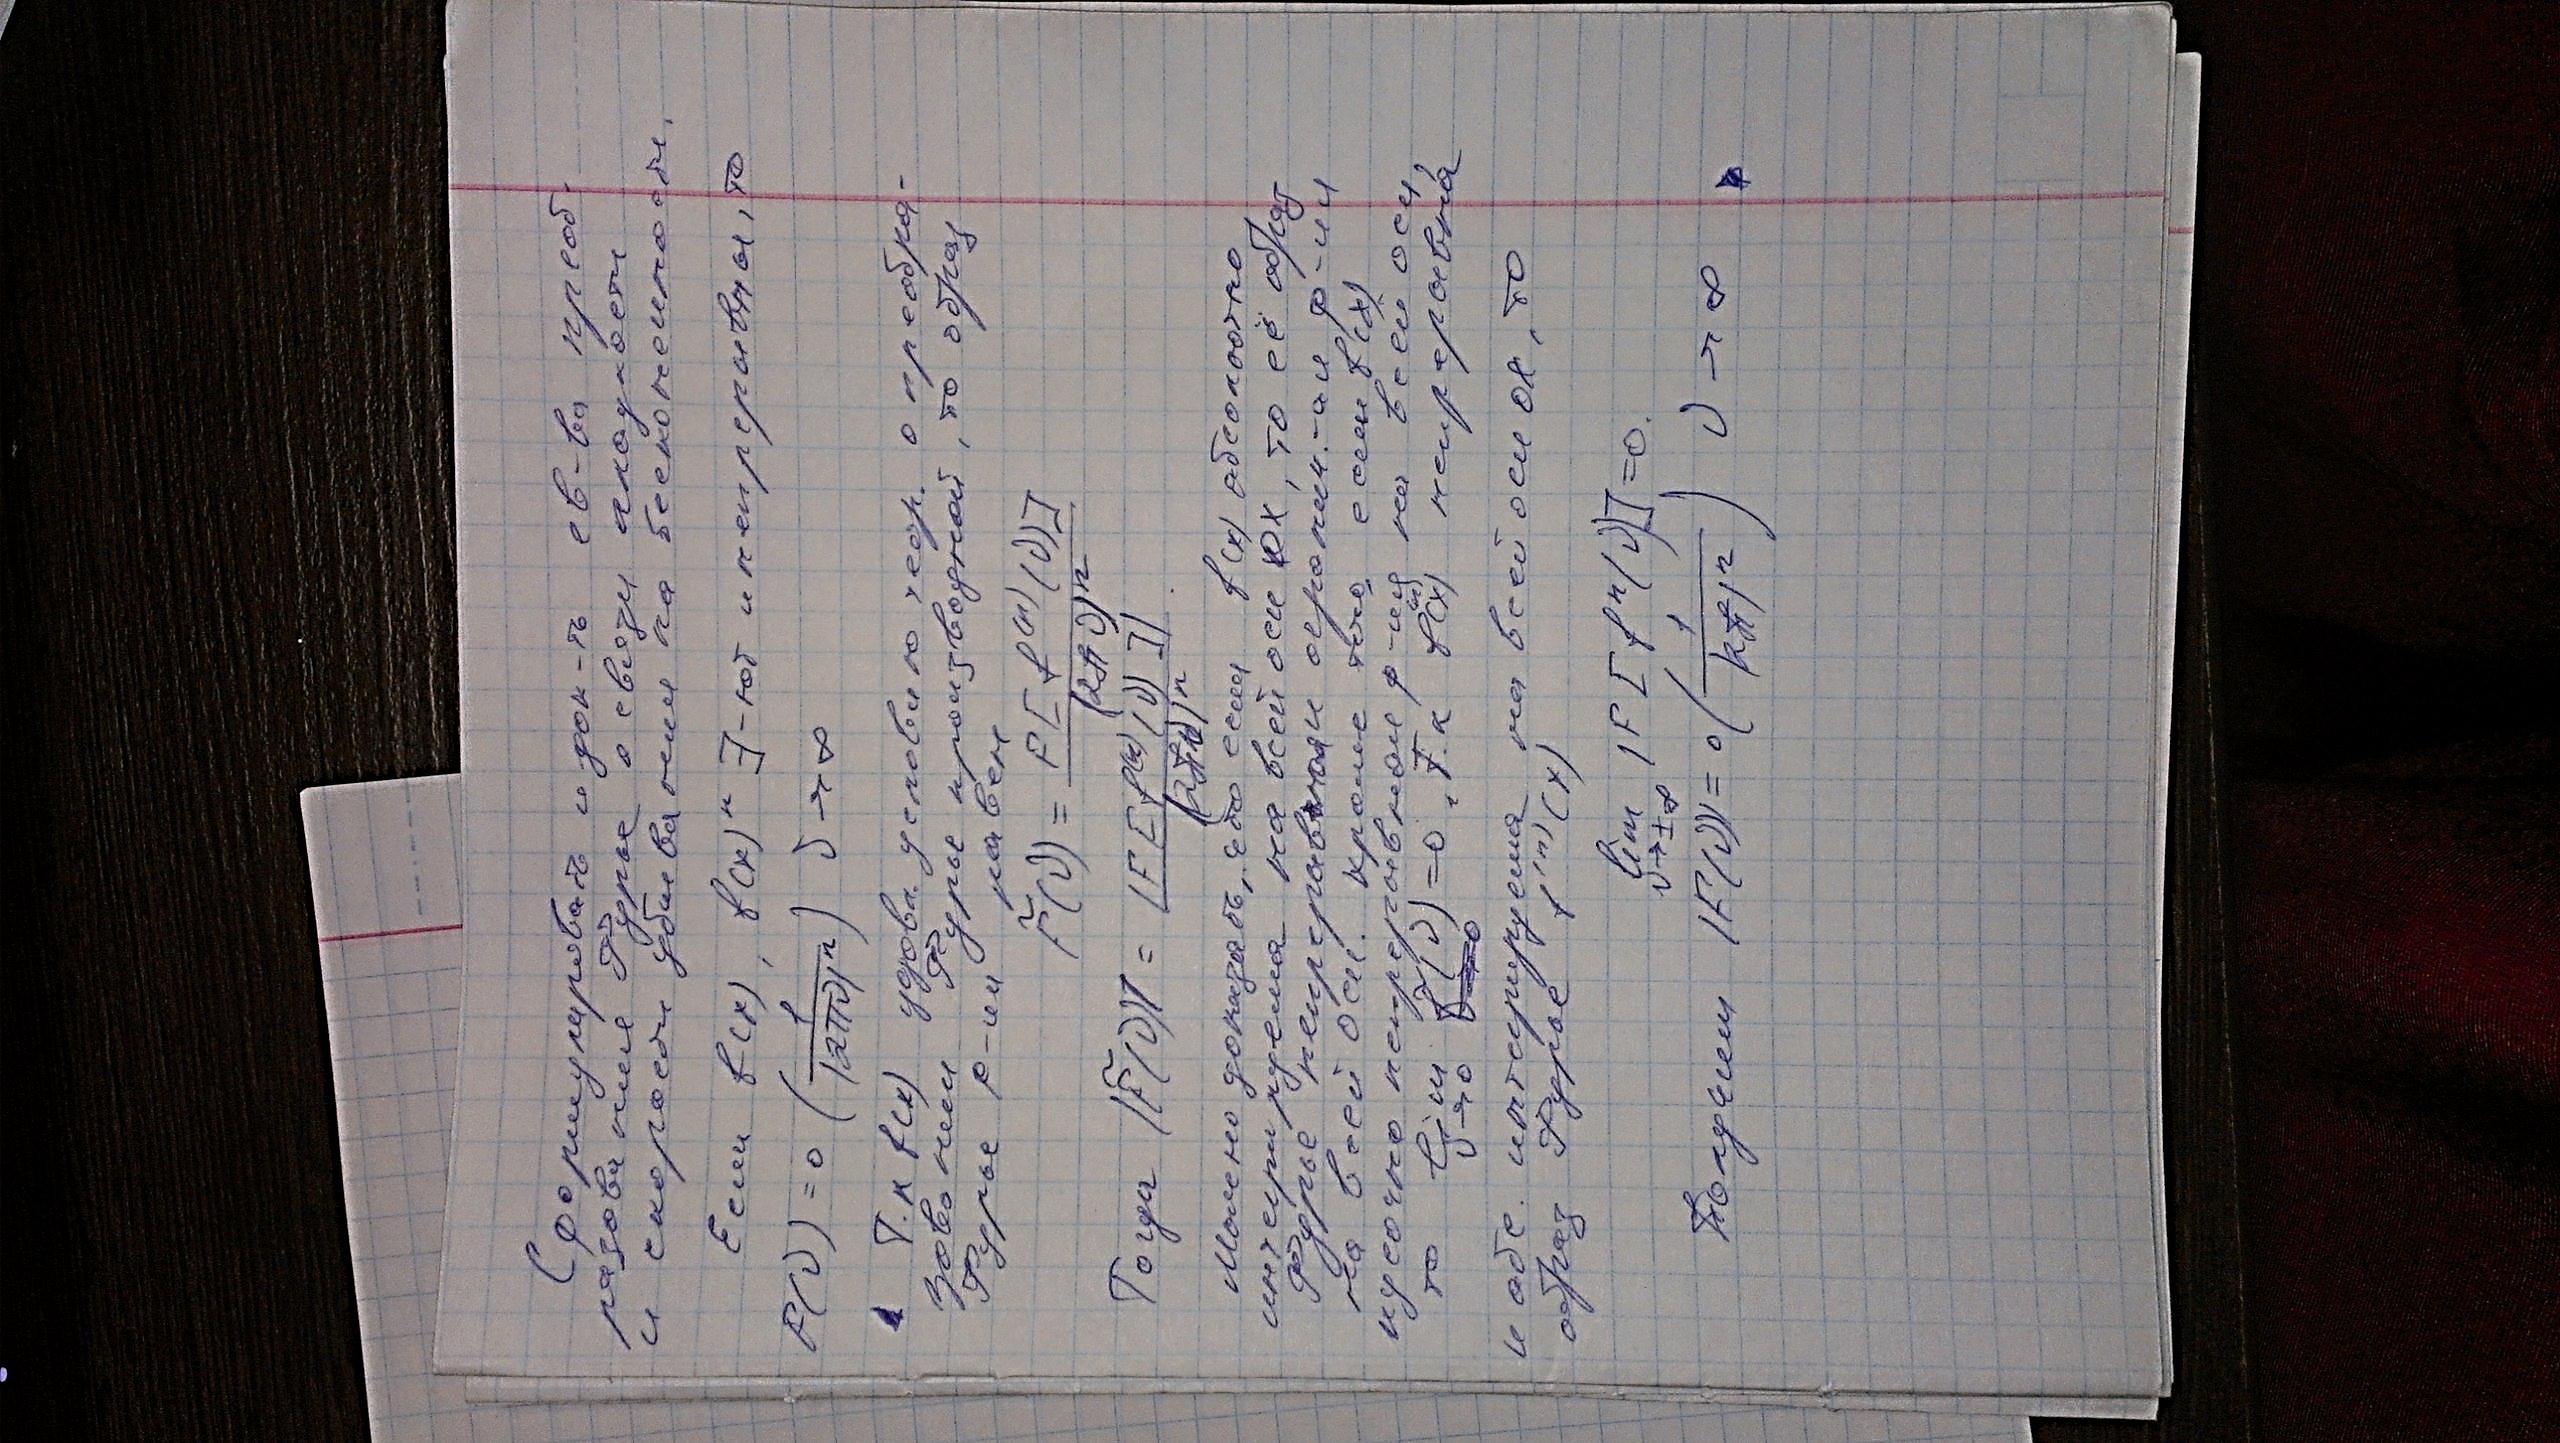 Сформулировать и док-ть св-ва преоб-
разования Фурье о связи гладкости
и скорости убывания на бесконечности.
Если f(x), f(x)ⁿ ∃-ют и непрерывны, то
F(ν) = o(1/|2πν|ⁿ) ν→∞
Т.к f(x) удовл. условию теор. о преобра-
зовании Фурье производной, то образ
Фурье ф-ии равен
F̃(ν) = F[f⁽ⁿ⁾(ν)]/(2πν)ⁿ
Тогда |F̃(ν)| = |F[f⁽ⁿ⁾(ν)]|/(2πν)ⁿ.
Можно доказать, что если f(x) абсолютно
интегрируема на всей оси OX, то её образ
Фурье непрерывная огранич.-ая ф-ии
на всей оси. Кроме того, если f(x)
кусочно непрерывная ф-ия на всей оси,
то lim ν→0 F̃(ν)=0. Т.к f⁽ⁿ⁾(x) непрерывна
и абс. интегрируема на всей оси OX, то
образ Фурье f⁽ⁿ⁾(x)
lim ν→±∞ |F[fⁿ(ν)]|=0.
Получаем |F(ν)|=o(1/|kπ|ⁿ) ν→∞